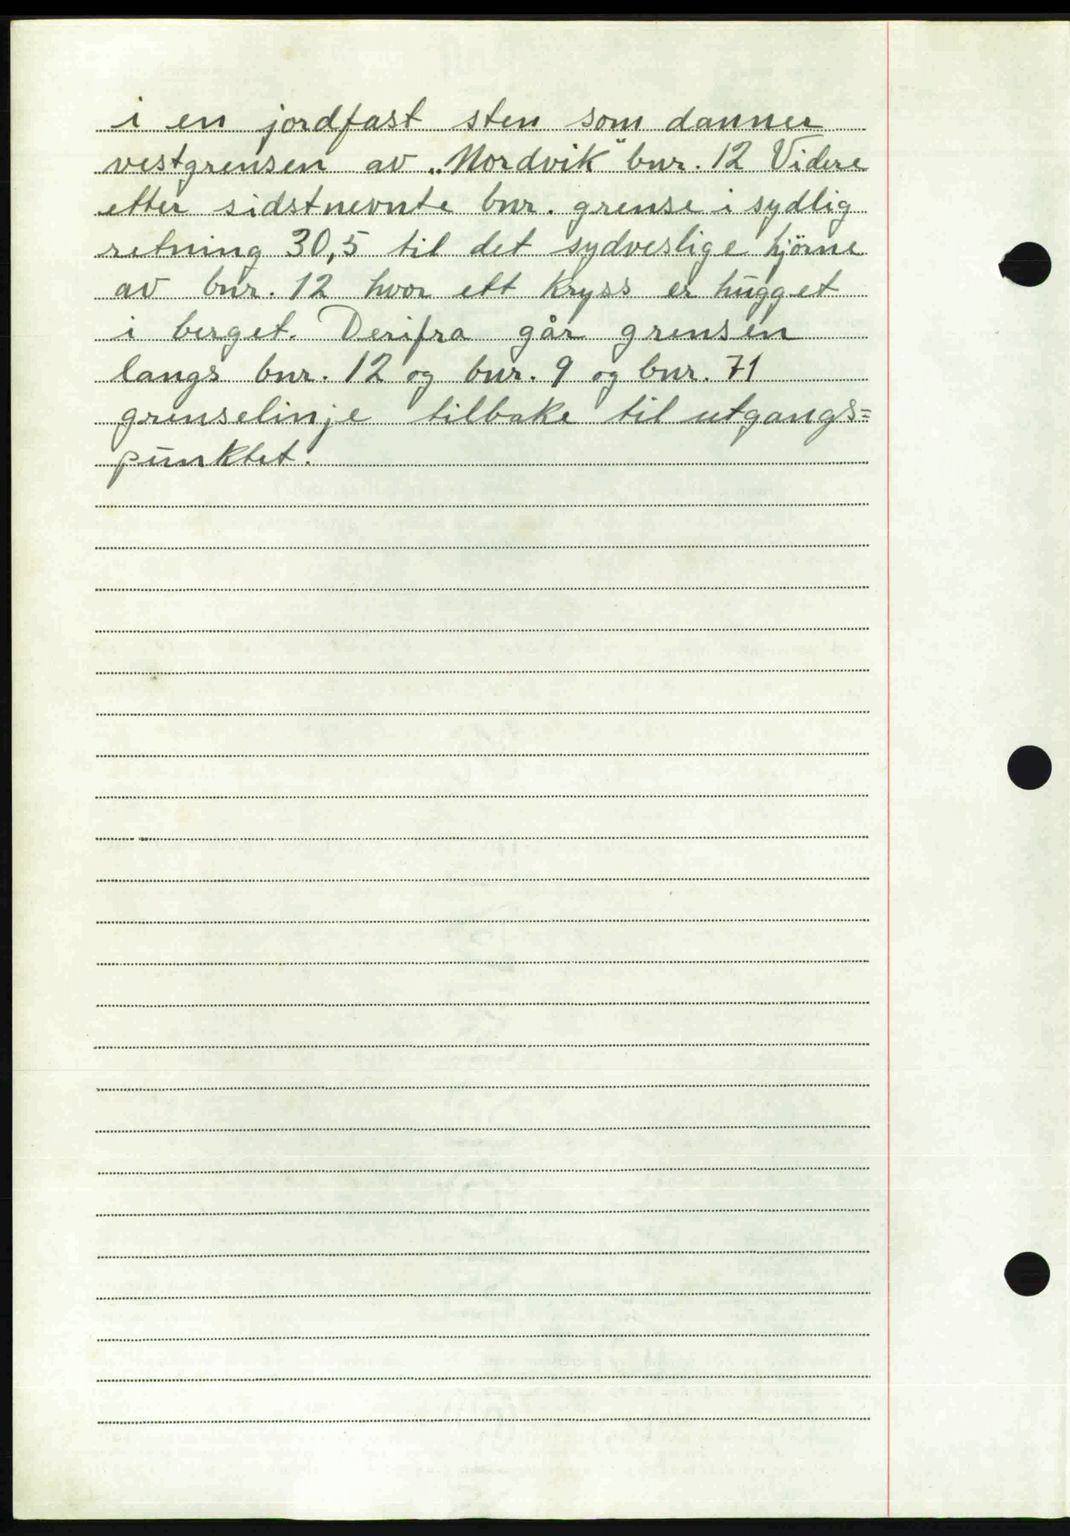 i en jordfast sten som danner
vestgrensen av „Nordvik" bnr. 12 Videre
etter sidstnevnte bnr. grense i sydlig
retning 30,5 til det sydveslige hjörne
av bnr. 12 hvor ett kryss er hugget
i berget. Derifra går grensen
langs bnr. 12 og bnr. 9 og bnr. 71
grenselinje tilbake til utgangs=
punktet.